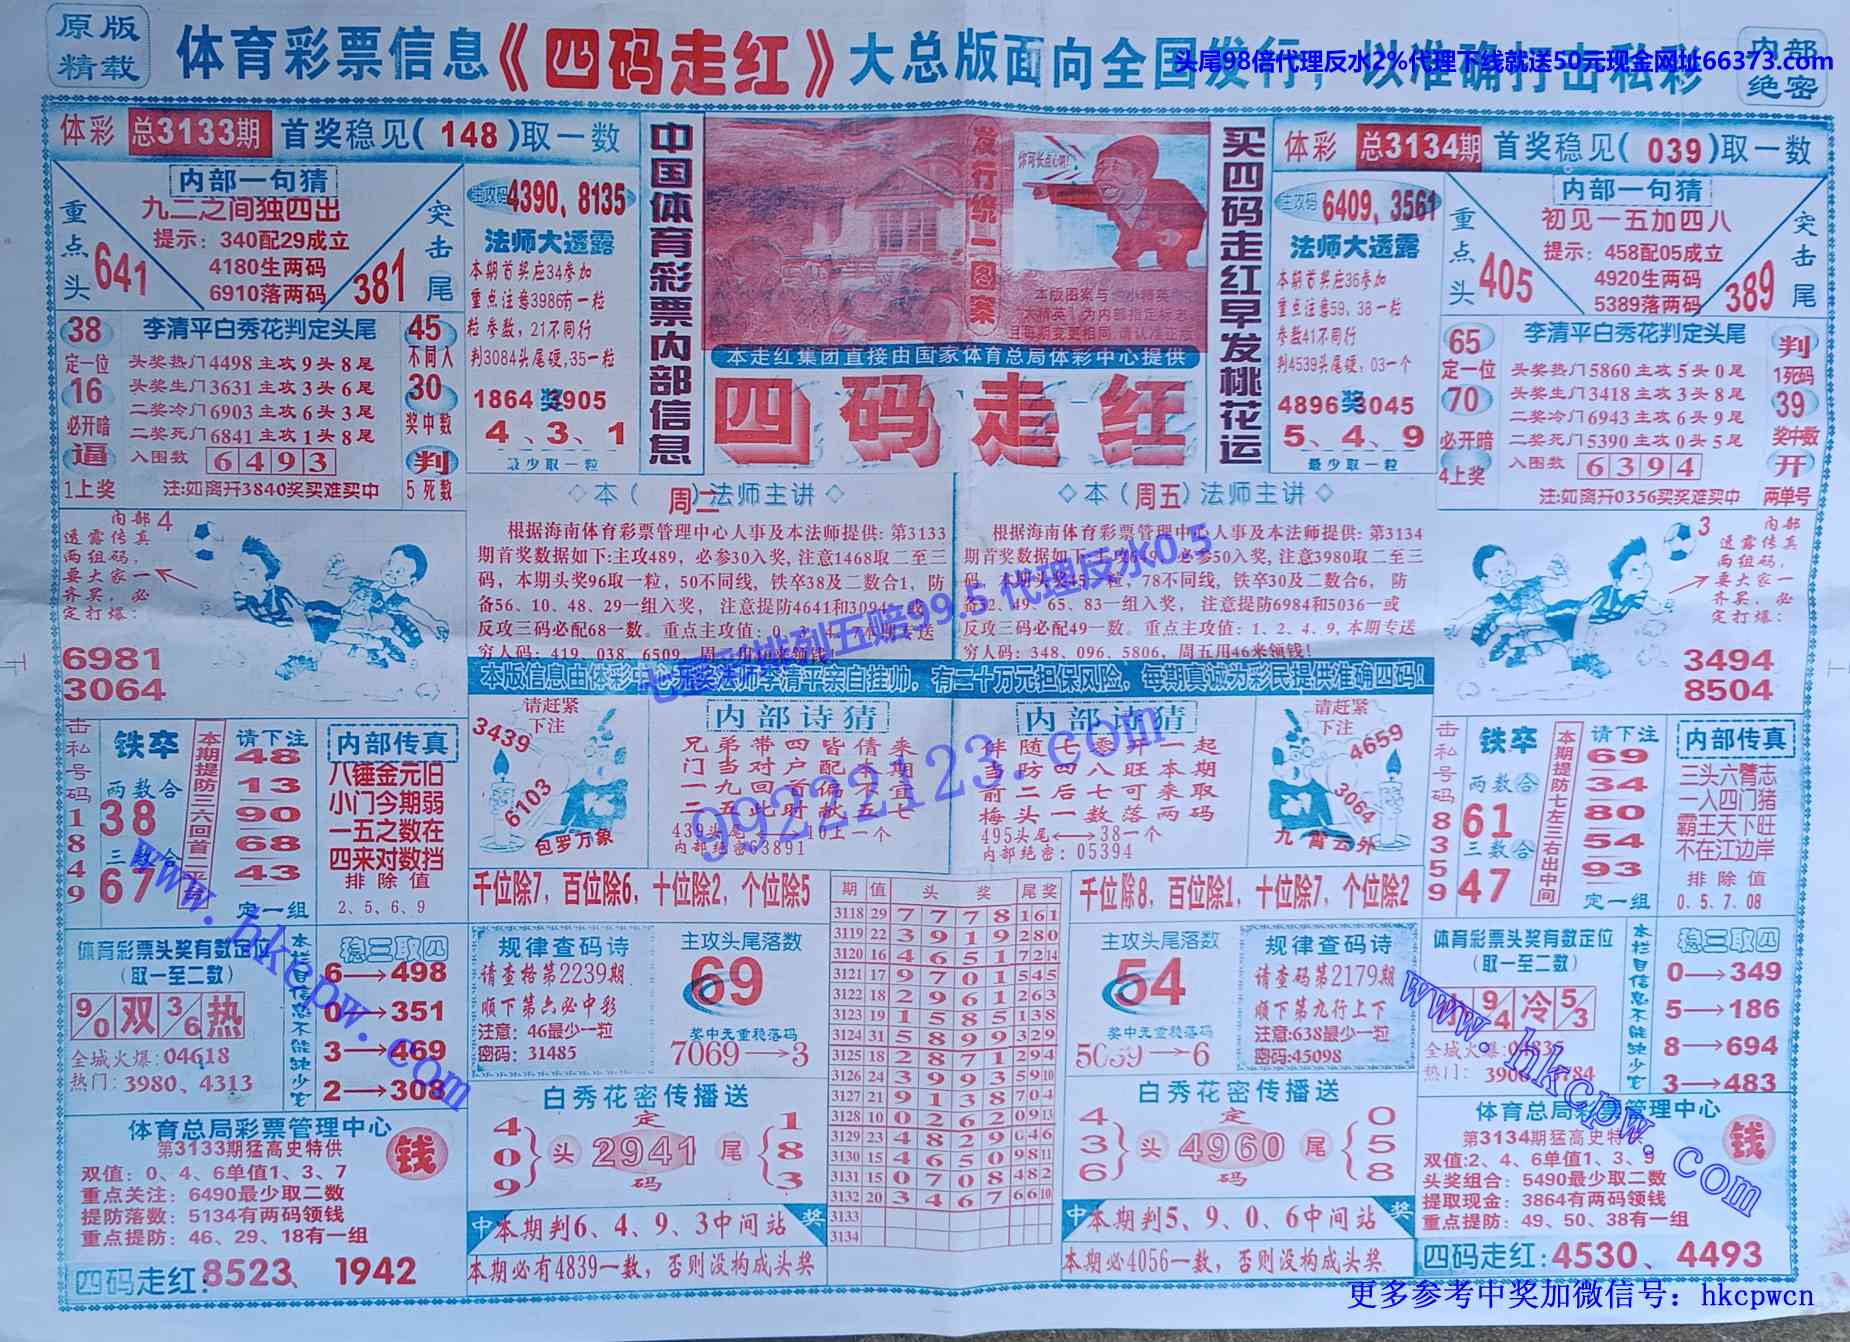 原版
精载
体育彩票信息《四码走红》大总版面向全国发行，以准确打击私彩
内部
绝密
头尾98倍代理反水2%代理下线就送50元现金网址66373.com
体彩 总3133期 首奖稳见(148)取一数
内部一句猜
九二之间独四出
提示：340配29成立
4180生两码
6910落两码
重点头
641
突击尾
381
主攻码4390、8135
法师大透露
本期首奖应34参加
重点注意3986有一粒
粒参数，21不同行
判3084头尾硬，35一粒
1864奖3905
4、3、1
最少取一粒
38
定一位
16
必开暗
逼
1上奖
李清平白秀花判定头尾
头奖热门4498主攻9头8尾
头奖生门3631主攻3头6尾
二奖冷门6903主攻6头3尾
二奖死门6841主攻1头8尾
入围数 6493
注:如离开3840奖买难买中
45
不同入
30
奖中数
判
5死数
中国体育彩票内部信息
发行统一图案
你可长点心啊!
本版图案与“小精英”
“大精英”为内部指定标志
且每期变更相同 请认准正版
本走红集团直接由国家体育总局体彩中心提供
四码走红
买四码走红早发桃花运
体彩 总3134期 首奖稳见(039)取一数
主攻码6409、3561
法师大透露
本期首奖应36参加
重点注意59、38一粒
参数41不同行
判4539头尾硬，03一个
4896奖3045
5、4、9
最少取一粒
内部一句猜
初见一五加四八
提示：458配05成立
4920生两码
5389落两码
重点头
405
突击尾
389
65
定一位
70
必开暗
4上奖
李清平白秀花判定头尾
头奖热门5860主攻5头0尾
头奖生门3418主攻3头8尾
二奖冷门6943主攻6头9尾
二奖死门5390主攻0头5尾
入围数 6394
注:如离开0356买奖难买中
判
1死码
39
奖中数
开
两单号
内部4
透露传真
两组码，
要大家一
齐买，必
定打爆：
6981
3064
◇本(周二)法师主讲◇
根据海南体育彩票管理中心人事及本法师提供: 第3133
期首奖数据如下:主攻489，必参30入奖, 注意1468取二至三
码，本期头奖96取一粒，50不同线, 铁卒38及二数合1，防
备56、10、48、29一组入奖， 注意提防4641和3094一或
反攻三码必配68一数。重点主攻值：0、3、4、7本期专送
穷人码：419、038、6509，周
◇本(周五)法师主讲◇
根据海南体育彩票管理中心人事及本法师提供: 第3134
必参50入奖, 注意3980取二至三
78不同线，铁卒30及二数合6，防
49、65、83一组入奖， 注意提防6984和5036一或
反攻三码必配49一数。重点主攻值：1、2、4、9, 本期专送
穷人码：348、096、5806，周五用46来领钱!
七星彩排列五赔99.5 代理反水0.5
3 内部
透露传真
两组码，
要大家一
齐买，必
定打爆：
3494
8504
本版信息由体彩中心 法师李清平亲自挂帅，有二十万元担保风险，每期真诚为彩民提供准确四码!
击私号码18449
铁卒
两数合
38
三数合
67
请下注
48
13
90
68
43
定一组
内部传真
八锤金元旧
小门今期弱
一五之数在
四来对数挡
排除值
2、5、6、9
请赶紧
下注
3439
6103
包罗万象
内部诗猜
兄弟带四皆借来
门当对户配本期
一九回首偏不宜
二五此时献五七
439头尾⟷10上一个
内部绝密63891
内部诗猜
伴随七季开一起
当防四八旺本期
前二后七可来取
梅头一数落两码
495头尾⟷38一个
内部绝密：05394
请赶紧
下注
4659
3064
九霄云外
99222123.com
击私号码83559
铁卒
两数合
61
三数合
47
本期提防七左三右出中间
请下注
69
34
80
54
93
定一组
内部传真
三头六臂志
一入四门猪
霸王天下旺
不在江边岸
排除值
0、5、7、08
千位除7，百位除6，十位除2，个位除5
千位除8，百位除1，十位除7，个位除2
体育彩票头奖有数定位
(取一至二数)
9/0 双 3/6 热
全城火爆：04618
热门：3980、4313
本栏目信息不能缺少它
稳三取四
6→498
0→351
3→469
2→308
规律查码诗
请查格第2239期
顺下第六必中彩
注意：46最少一粒
密码：31485
主攻头尾落数
69
奖中无重稳落码
7069→3
期 值 头奖 尾奖
3118 29 7 7 7 8 1 6 1
3119 22 3 9 1 9 2 8 0
3120 16 4 6 5 1 7 2 14
3121 17 9 7 0 1 5 4 5
3122 18 2 9 6 1 2 6 3
3123 19 1 5 8 5 1 3 8
3124 31 5 8 9 9 3 2 9
3125 18 2 8 7 1 2 9 4
3126 24 3 9 9 3 5 9 10
3127 21 9 1 3 8 7 0 4
3128 10 0 2 6 2 0 9 13
3129 23 4 8 2 9 0 4 6
3130 15 4 6 5 0 9 8 11
3131 15 0 7 0 8 4 8 2
3132 20 3 4 6 7 6 6 10
3133
3134
主攻头尾落数
54
奖中无重稳落码
5039→6
规律查码诗
请查码第2179期
顺下第九行上下
注意:638最少一粒
密码:45098
体育彩票头奖有数定位
(取一至二数)
9/4 冷 5/3
全城火爆:
热门：
本栏目信息不能缺少它
稳三取四
0→349
5→186
8→694
3→483
www.hkcpw.com
www.hkcpw.com
体育总局彩票管理中心
第3133期猛高史特供
双值：0、4、6单值1、3、7
重点关注：6490最少取二数
提防落数：5134有两码领钱
重点提防：46、29、18有一组
钱
四码走红:8523、1942
白秀花密传播送
409 头 定 2941 码 尾 183
中 本期判6、4、9、3中间站 奖
本期必有4839一数，否则没构成头奖
白秀花密传播送
436 头 定 4960 码 尾 058
中 本期判5、9、0、6中间站 奖
本期必4056一数，否则没构成头奖
体育总局彩票管理中心
第3134期猛高史特供
双值:2、4、6单值1、3、9
头奖组合：5490最少取二数
提取现金：3864有两码领钱
重点提防：49、50、38有一组
钱
四码走红:4530、4493
更多参考中奖加微信号：hkcpwcn